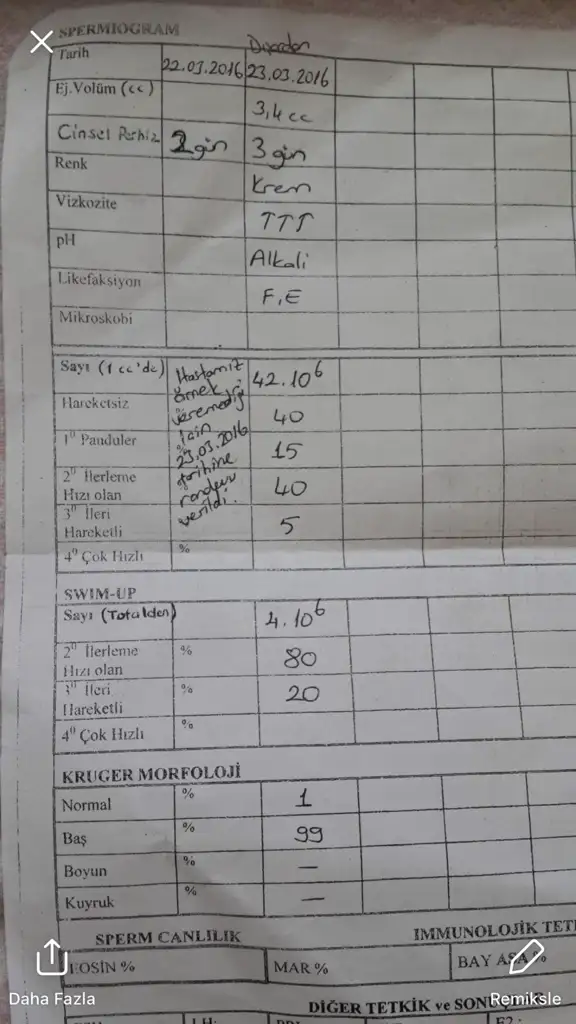 SPERMIOGRAM
Dışardan
Tarih 22.03.2016 23.03.2016
Ej.Volüm (cc) 3,4 cc
Cinsel Perhiz 2 gün 3 gün
Renk Krem
Vizkozite TTT
pH Alkali
Likefaksiyon F,E
Mikroskobi
Sayı (1 cc'de) 42.10⁶
Hastamız
örnek
veremediği
için
23.03.2016
tarihine
randevu
verildi.
Hareketsiz 40
1⁰ Panduler % 15
2⁰ İlerleme
Hızı olan 40
3⁰ İleri
Hareketli 5
4⁰ Çok Hızlı %
SWIM-UP
Sayı (Totalden) 4.10⁶
2⁰ İlerleme
Hızı olan % 80
3⁰ İleri
Hareketli % 20
4⁰ Çok Hızlı %
KRUGER MORFOLOJİ
Normal % 1
Baş % 99
Boyun % —
Kuyruk % —
SPERM CANLILIK IMMUNOLOJİK TETK
EOSİN % MAR % BAY ASA %
DİĞER TETKİK ve SONUÇ
LH: E2 :
Daha Fazla
Remiksle